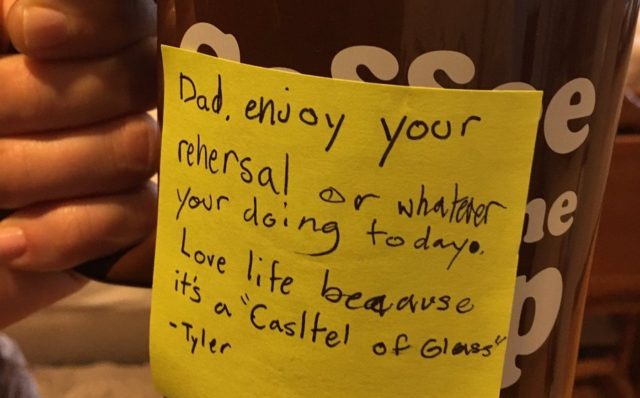 Coffee
Dad, enjoy your
rehersal or whatever
your doing today.
Love life beacause
it's a "Casltel of Glass"
-Tyler